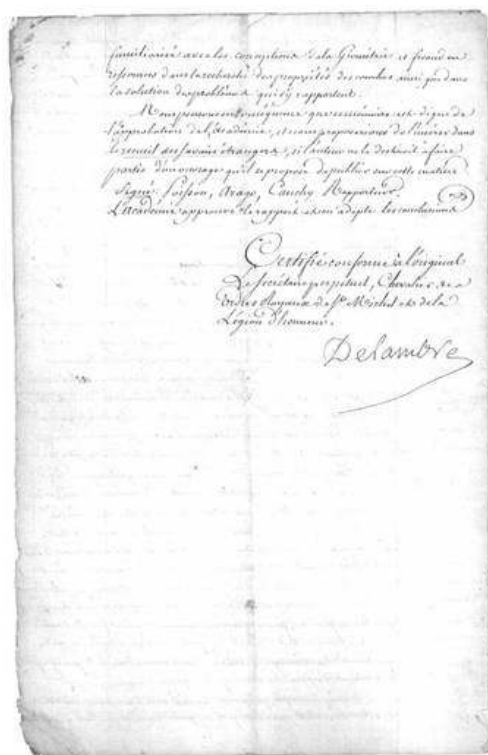 familiarisé avec les conceptions de la Géométrie et fécond en
ressources dans la recherche des propriétés des courbes ainsi que dans
la solution des problèmes qui s'y rapportent.
Nous pensons en conséquence que ce mémoire est digne de
l'approbation de l'académie, et nous proposerions de l'insérer dans
le recueil des Savans étrangers, si l'auteur ne le destinait à faire
partie d'un ouvrage qu'il se propose de publier sur cette matière
Signé: Poisson, Arago, Cauchy Rapporteur.
L'académie approuve le rapport et en adopte les conclusions
Certifié conforme à l'original
Le Secrétaire perpétuel, Chevalier des
Ordres Royaux de St. Michel et de la
Légion d'honneur.
Delambre